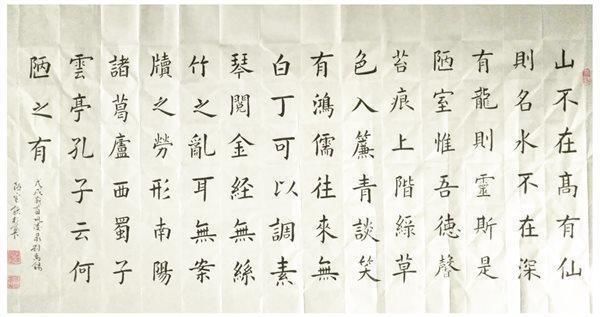 山不在高有仙
則名水不在深
有龍則靈斯是
陋室惟吾德馨
苔痕上階綠草
色入簾青談笑
有鴻儒往來無
白丁可以調素
琴閱金經無絲
竹之亂耳無案
牘之勞形南陽
諸葛廬西蜀子
雲亭孔子云何
陋之有
戊戌劉禹錫
陋室